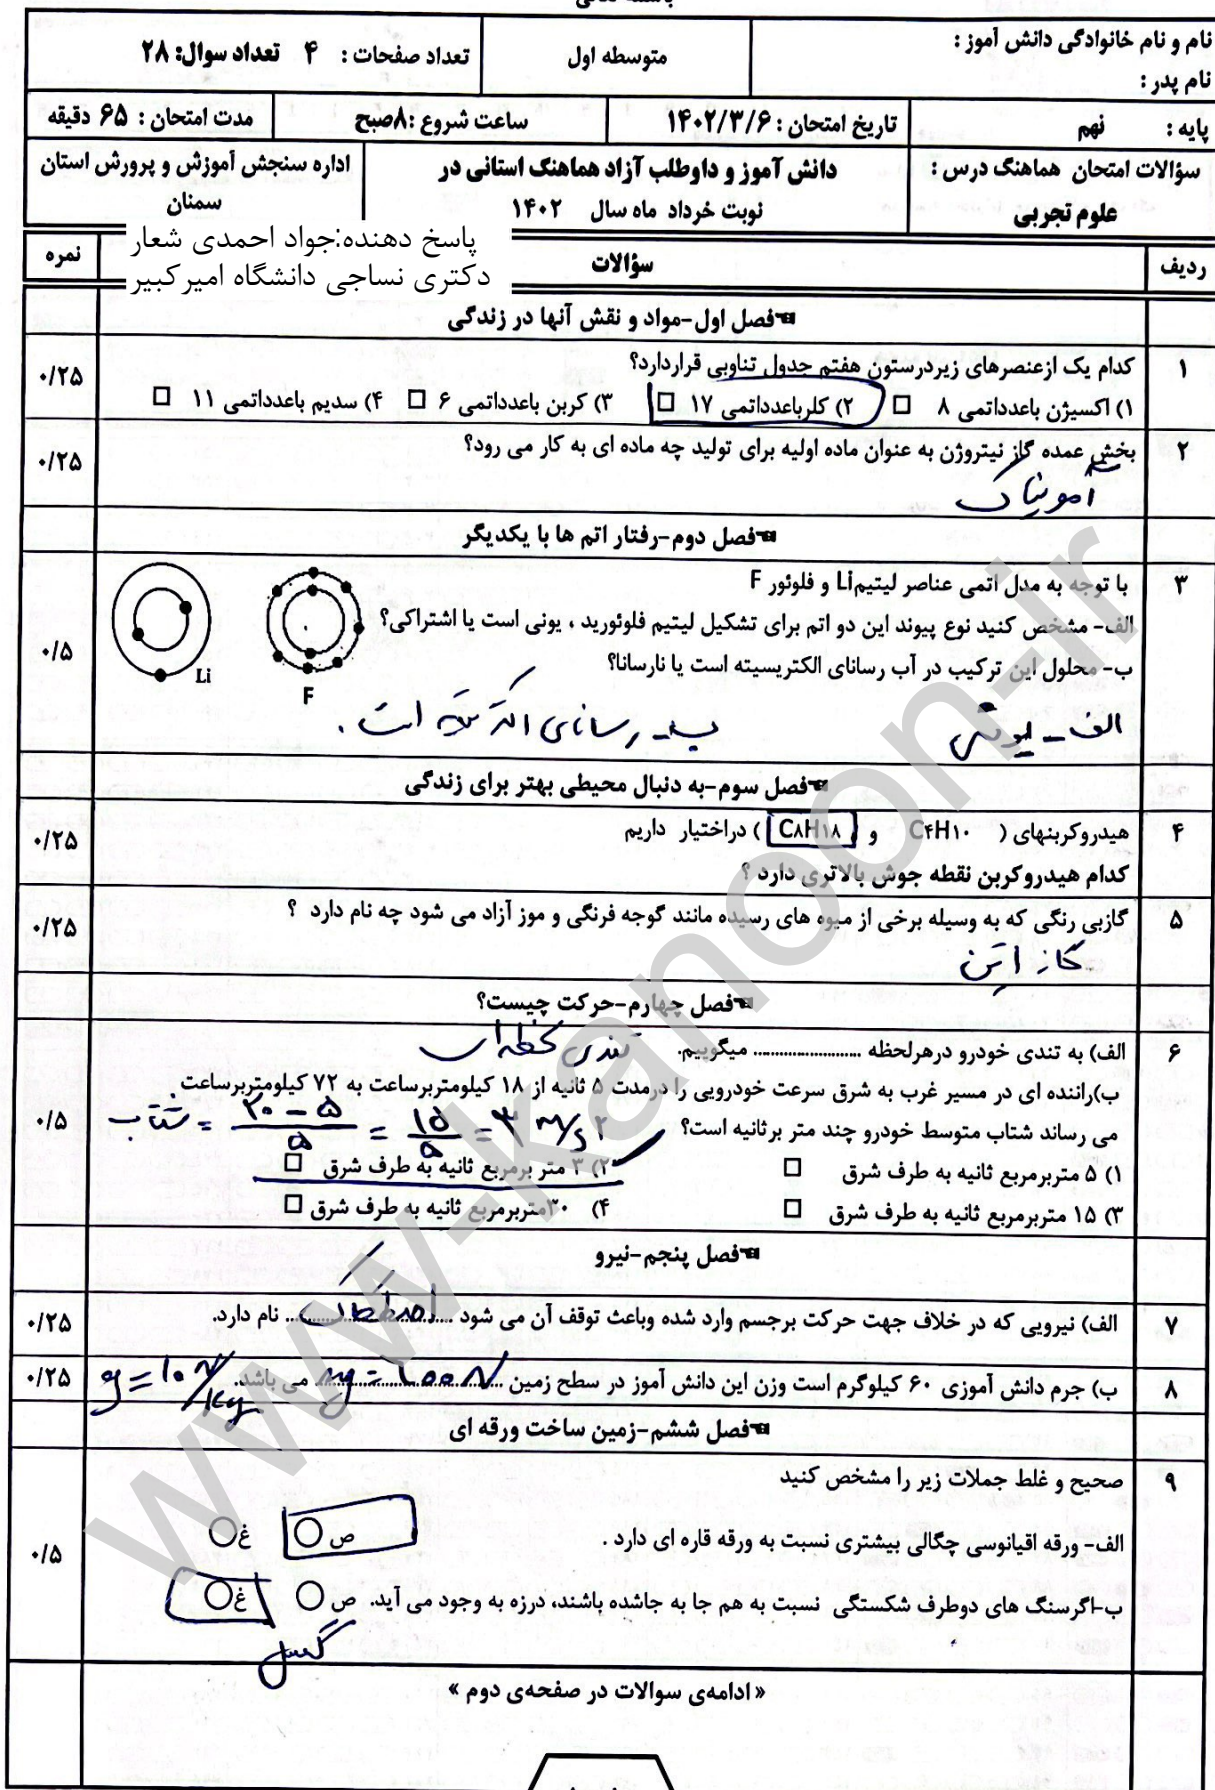 نام و نام خانوادگی دانش آموز :
نام پدر :
متوسطه اول
تعداد صفحات : ۴ تعداد سوال: ۲۸
پایه : نهم
تاریخ امتحان : ۱۴۰۲/۳/۶
ساعت شروع :۸صبح
مدت امتحان : ۶۵ دقیقه
سؤالات امتحان هماهنگ درس :
علوم تجربی
دانش آموز و داوطلب آزاد هماهنگ استانی در
نوبت خرداد ماه سال ۱۴۰۲
اداره سنجش آموزش و پرورش استان
سمنان
پاسخ دهنده:جواد احمدی شعار
دکتری نساجی دانشگاه امیرکبیر
ردیف سؤالات نمره
فصل اول-مواد و نقش آنها در زندگی
۱ کدام یک ازعنصرهای زیردرستون هفتم جدول تناوبی قراردارد؟ ۰/۲۵
۱) اکسیژن باعدداتمی ۸ ۲) کلرباعدداتمی ۱۷ ۳) کربن باعدداتمی ۶ ۴) سدیم باعدداتمی ۱۱
۲ بخش عمده گاز نیتروژن به عنوان ماده اولیه برای تولید چه ماده ای به کار می رود؟ ۰/۲۵
آمونیاک
فصل دوم-رفتار اتم ها با یکدیگر
۳ با توجه به مدل اتمی عناصر لیتیمLi و فلوئور F
الف- مشخص کنید نوع پیوند این دو اتم برای تشکیل لیتیم فلوئورید ، یونی است یا اشتراکی؟
ب- محلول این ترکیب در آب رسانای الکتریسیته است یا نارسانا؟ ۰/۵
Li
F
الف - یونی ب - رسانای الکتریسیته است .
فصل سوم-به دنبال محیطی بهتر برای زندگی
۴ هیدروکربنهای ( C۴H۱۰ و C۸H۱۸ ) دراختیار داریم ۰/۲۵
کدام هیدروکربن نقطه جوش بالاتری دارد ؟
۵ گازبی رنگی که به وسیله برخی از میوه های رسیده مانند گوجه فرنگی و موز آزاد می شود چه نام دارد ؟ ۰/۲۵
گاز اتن
فصل چهارم-حرکت چیست؟
۶ الف) به تندی خودرو درهرلحظه .................... میگوییم. تندی لحظه ای
ب)راننده ای در مسیر غرب به شرق سرعت خودرویی را درمدت ۵ ثانیه از ۱۸ کیلومتربرساعت به ۷۲ کیلومتربرساعت
می رساند شتاب متوسط خودرو چند متر برثانیه است؟ ۰/۵
شتاب = (۲۰ - ۵)/۵ = ۱۵/۵ = ۳ m/s۲
۱) ۵ متربرمربع ثانیه به طرف شرق ۲) ۳ متر برمربع ثانیه به طرف شرق
۳) ۱۵ متربرمربع ثانیه به طرف شرق ۴) ۳۰متربرمربع ثانیه به طرف شرق
فصل پنجم-نیرو
۷ الف) نیرویی که در خلاف جهت حرکت برجسم وارد شده وباعث توقف آن می شود ....اصطکاک.... نام دارد. ۰/۲۵
۸ ب) جرم دانش آموزی ۶۰ کیلوگرم است وزن این دانش آموز در سطح زمین ........ می باشد. ۰/۲۵
mg = ۶۰۰ N
g = ۱۰ N/kg
فصل ششم-زمین ساخت ورقه ای
۹ صحیح و غلط جملات زیر را مشخص کنید
الف- ورقه اقیانوسی چگالی بیشتری نسبت به ورقه قاره ای دارد . ص غ ۰/۵
ب-اگرسنگ های دوطرف شکستگی نسبت به هم جا به جاشده باشند، درزه به وجود می آید. ص غ
گسل
« ادامه‌ی سوالات در صفحه‌ی دوم »
www.kanoon.ir